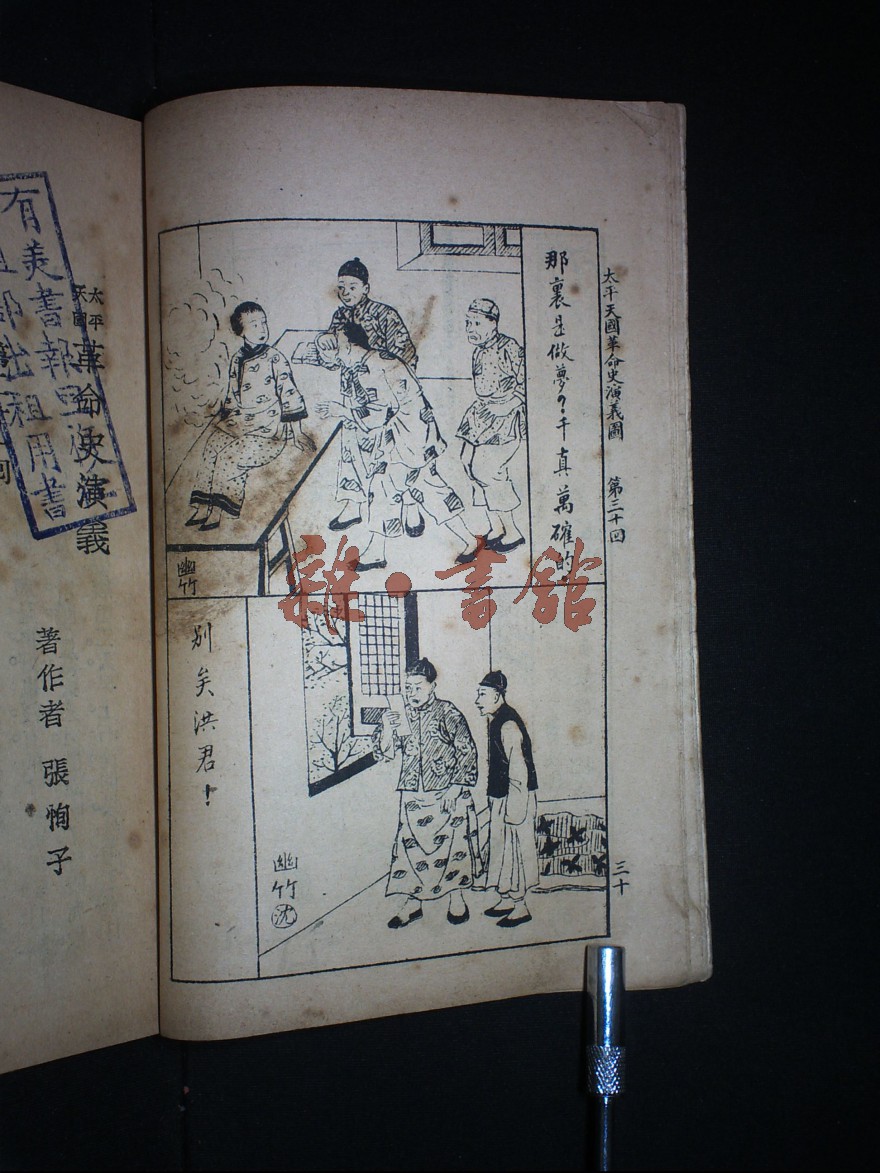 太平天國革命史演義圖　第三十回　三十
那裏是做夢？千真萬確的
幽竹
別矣洪君！
幽竹
沈
雜·書館
太平
天國
革命史演義
著作者　張恂子
有美書報
租用書